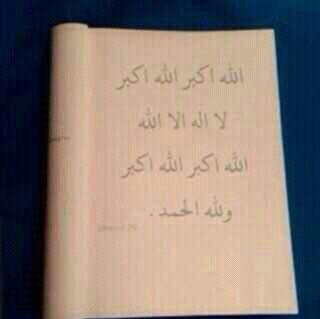 الله اكبر الله اكبر
لا اله الا الله
الله اكبر الله اكبر
ولله الحمد .